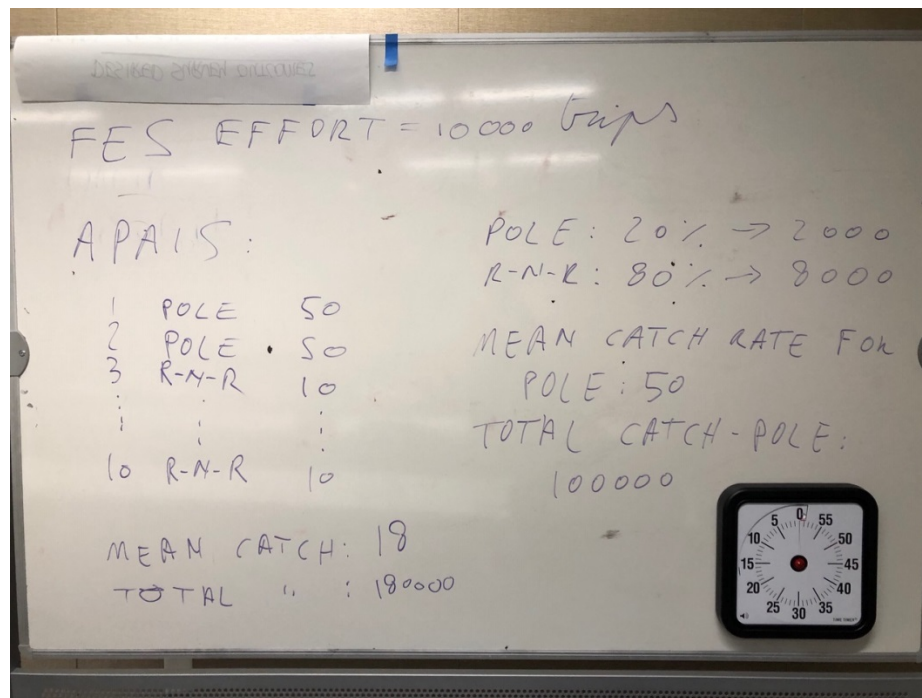 FES EFFORT = 10000 trips
APAIS:
1 POLE 50
2 POLE 50
3 R-N-R 10
⋮ ⋮ ⋮
10 R-N-R 10
MEAN CATCH: 18
TOTAL " : 180000
POLE: 20% → 2000
R-N-R: 80% → 8000
MEAN CATCH RATE FOR
POLE: 50
TOTAL CATCH-POLE:
100000
0 55 50 45 40 35 30 25 20 15 10 5